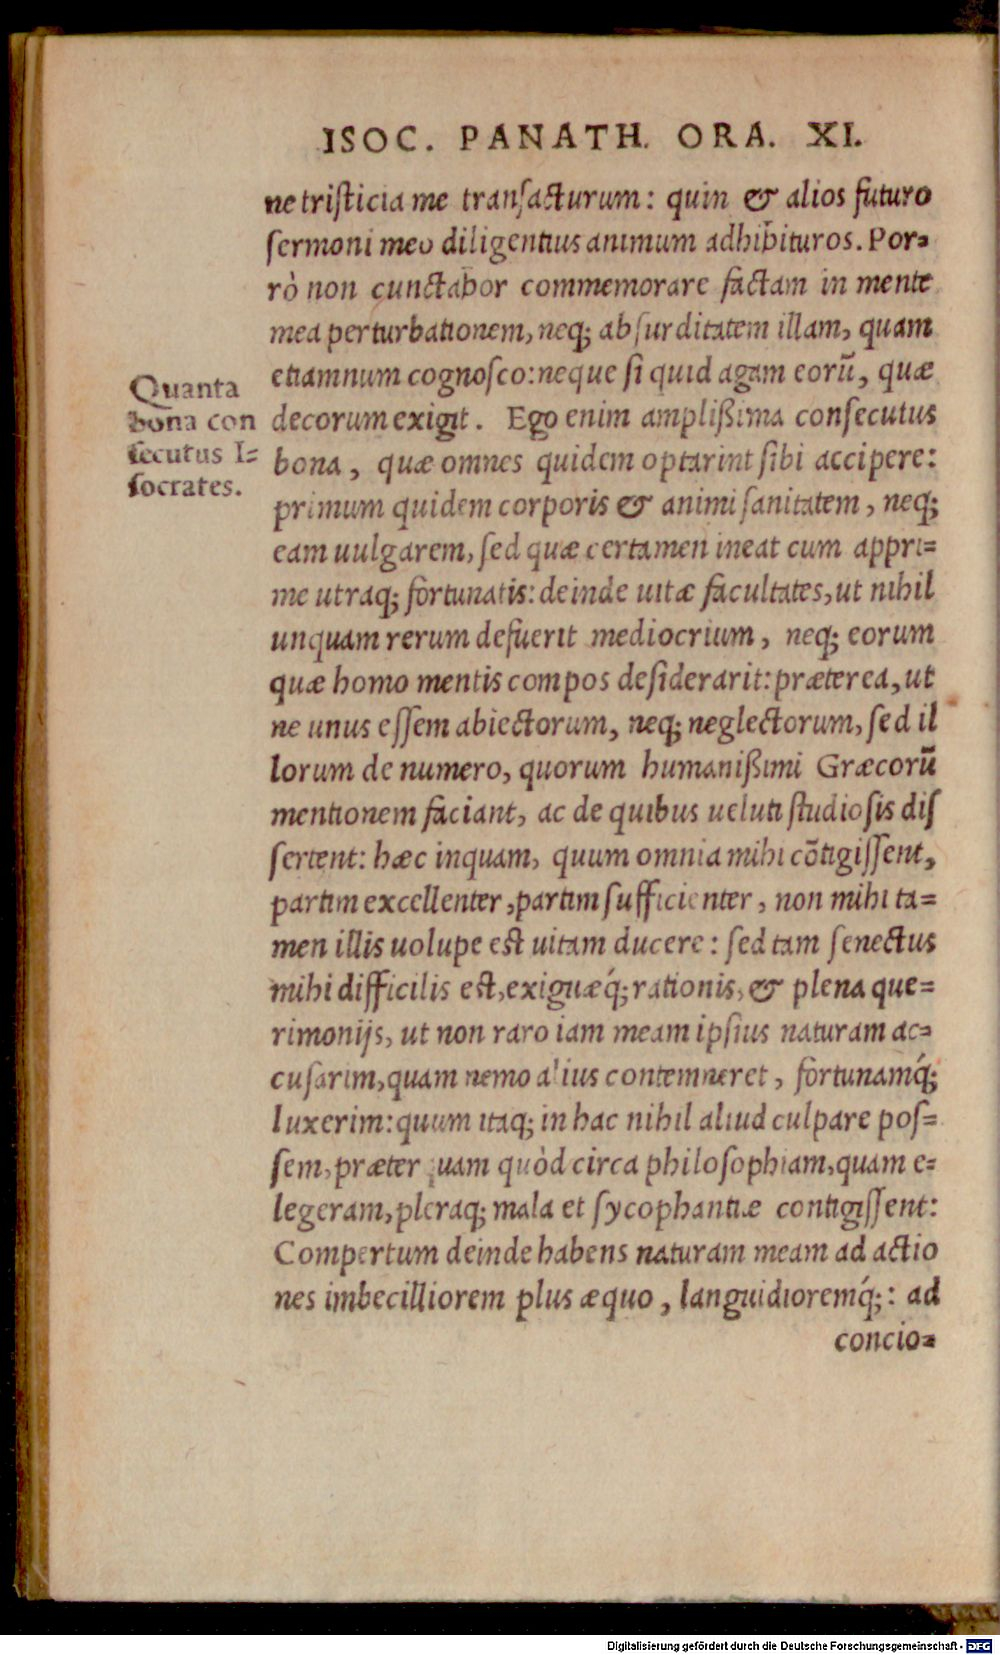 ISOC. PANATH. ORA. XI.
ne tristicia me transacturum: quin & alios futuro
sermoni meo diligentius animum adhibituros. Por-
rò non cunctabor commemorare factam in mente
mea perturbationem, neq; absurditatem illam, quam
etiamnum cognosco: neque si quid agam eorũ, quæ
decorum exigit. Ego enim amplißima consecutus
bona, quæ omnes quidem optarint sibi accipere:
primum quidem corporis & animi sanitatem, neq;
eam uulgarem, sed quæ certamen ineat cum appri-
me utraq; fortunatis: deinde uitæ facultates, ut nihil
unquam rerum defuerit mediocrium, neq; eorum
quæ homo mentis compos desiderarit: præterea, ut
ne unus essem abiectorum, neq; neglectorum, sed il
lorum de numero, quorum humanißimi Græcorũ
mentionem faciant, ac de quibus ueluti studiosis dis
sertent: hæc inquam, quum omnia mihi cõtigissent,
partim excellenter, partim sufficienter, non mihi ta-
men illis uolupe est uitam ducere: sed tam senectus
mihi difficilis est, exiguæq́; rationis, & plena que-
rimonijs, ut non raro iam meam ipsius naturam ac-
cusarim, quam nemo alius contemneret, fortunamq́;
luxerim: quum itaq; in hac nihil aliud culpare pos-
sem, præterquam quòd circa philosophiam, quam e-
legeram, pleraq; mala et sycophantiæ contigissent:
Compertum deinde habens naturam meam ad actio
nes imbecilliorem plus æquo, languidioremq́;: ad
concio-
Quanta
bona con
secutus I-
socrates.
Digitalisierung gefördert durch die Deutsche Forschungsgemeinschaft - DFG